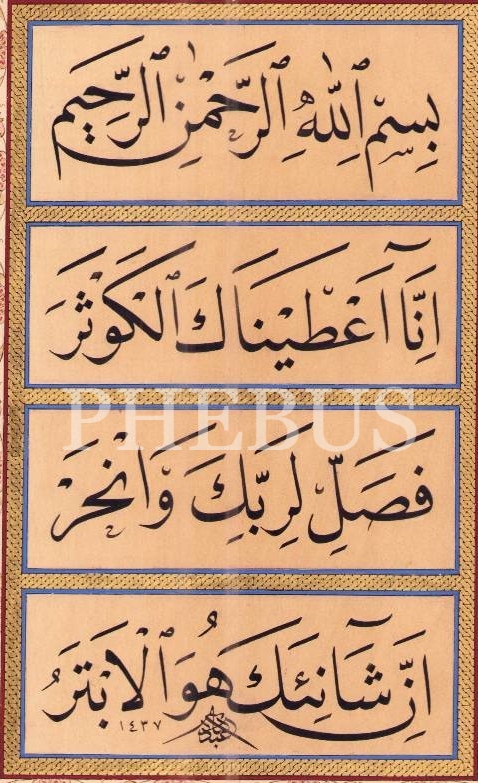 بِسْمِ ٱللّٰهِ ٱلرَّحْمٰنِ ٱلرَّحِيمِ
اِنَّٓا اَعْطَيْنَاكَ ٱلْكَوْثَرَ
PHEBUS
فَصَلِّ لِرَبِّكَ وَٱنْحَرْ
اِنَّ شَٓانِئَكَ هُوَ ٱلْاَبْتَرُ
١٤٣٧